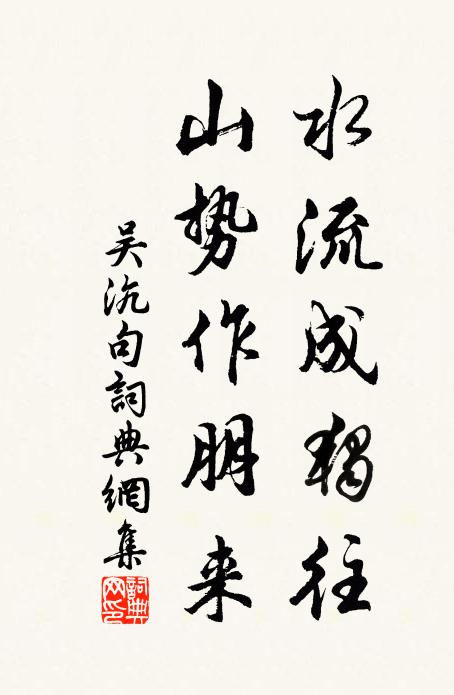 水流成獨往
山勢作朋来
吴沆句詞典網集
詞典網印